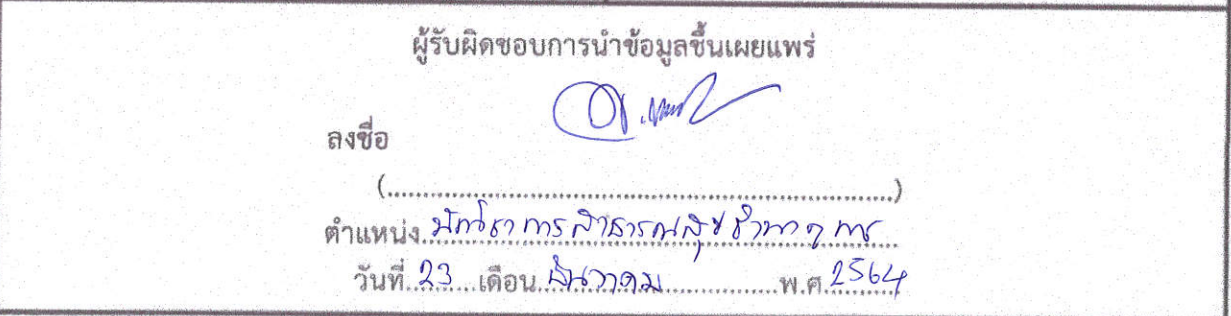 ผู้รับผิดชอบการนำข้อมูลขึ้นเผยแพร่
ลงชื่อ
(..............................................................)
ตำแหน่ง นักวิชาการสาธารณสุขชำนาญการ
วันที่ 23 เดือน ธันวาคม พ.ศ. 2564